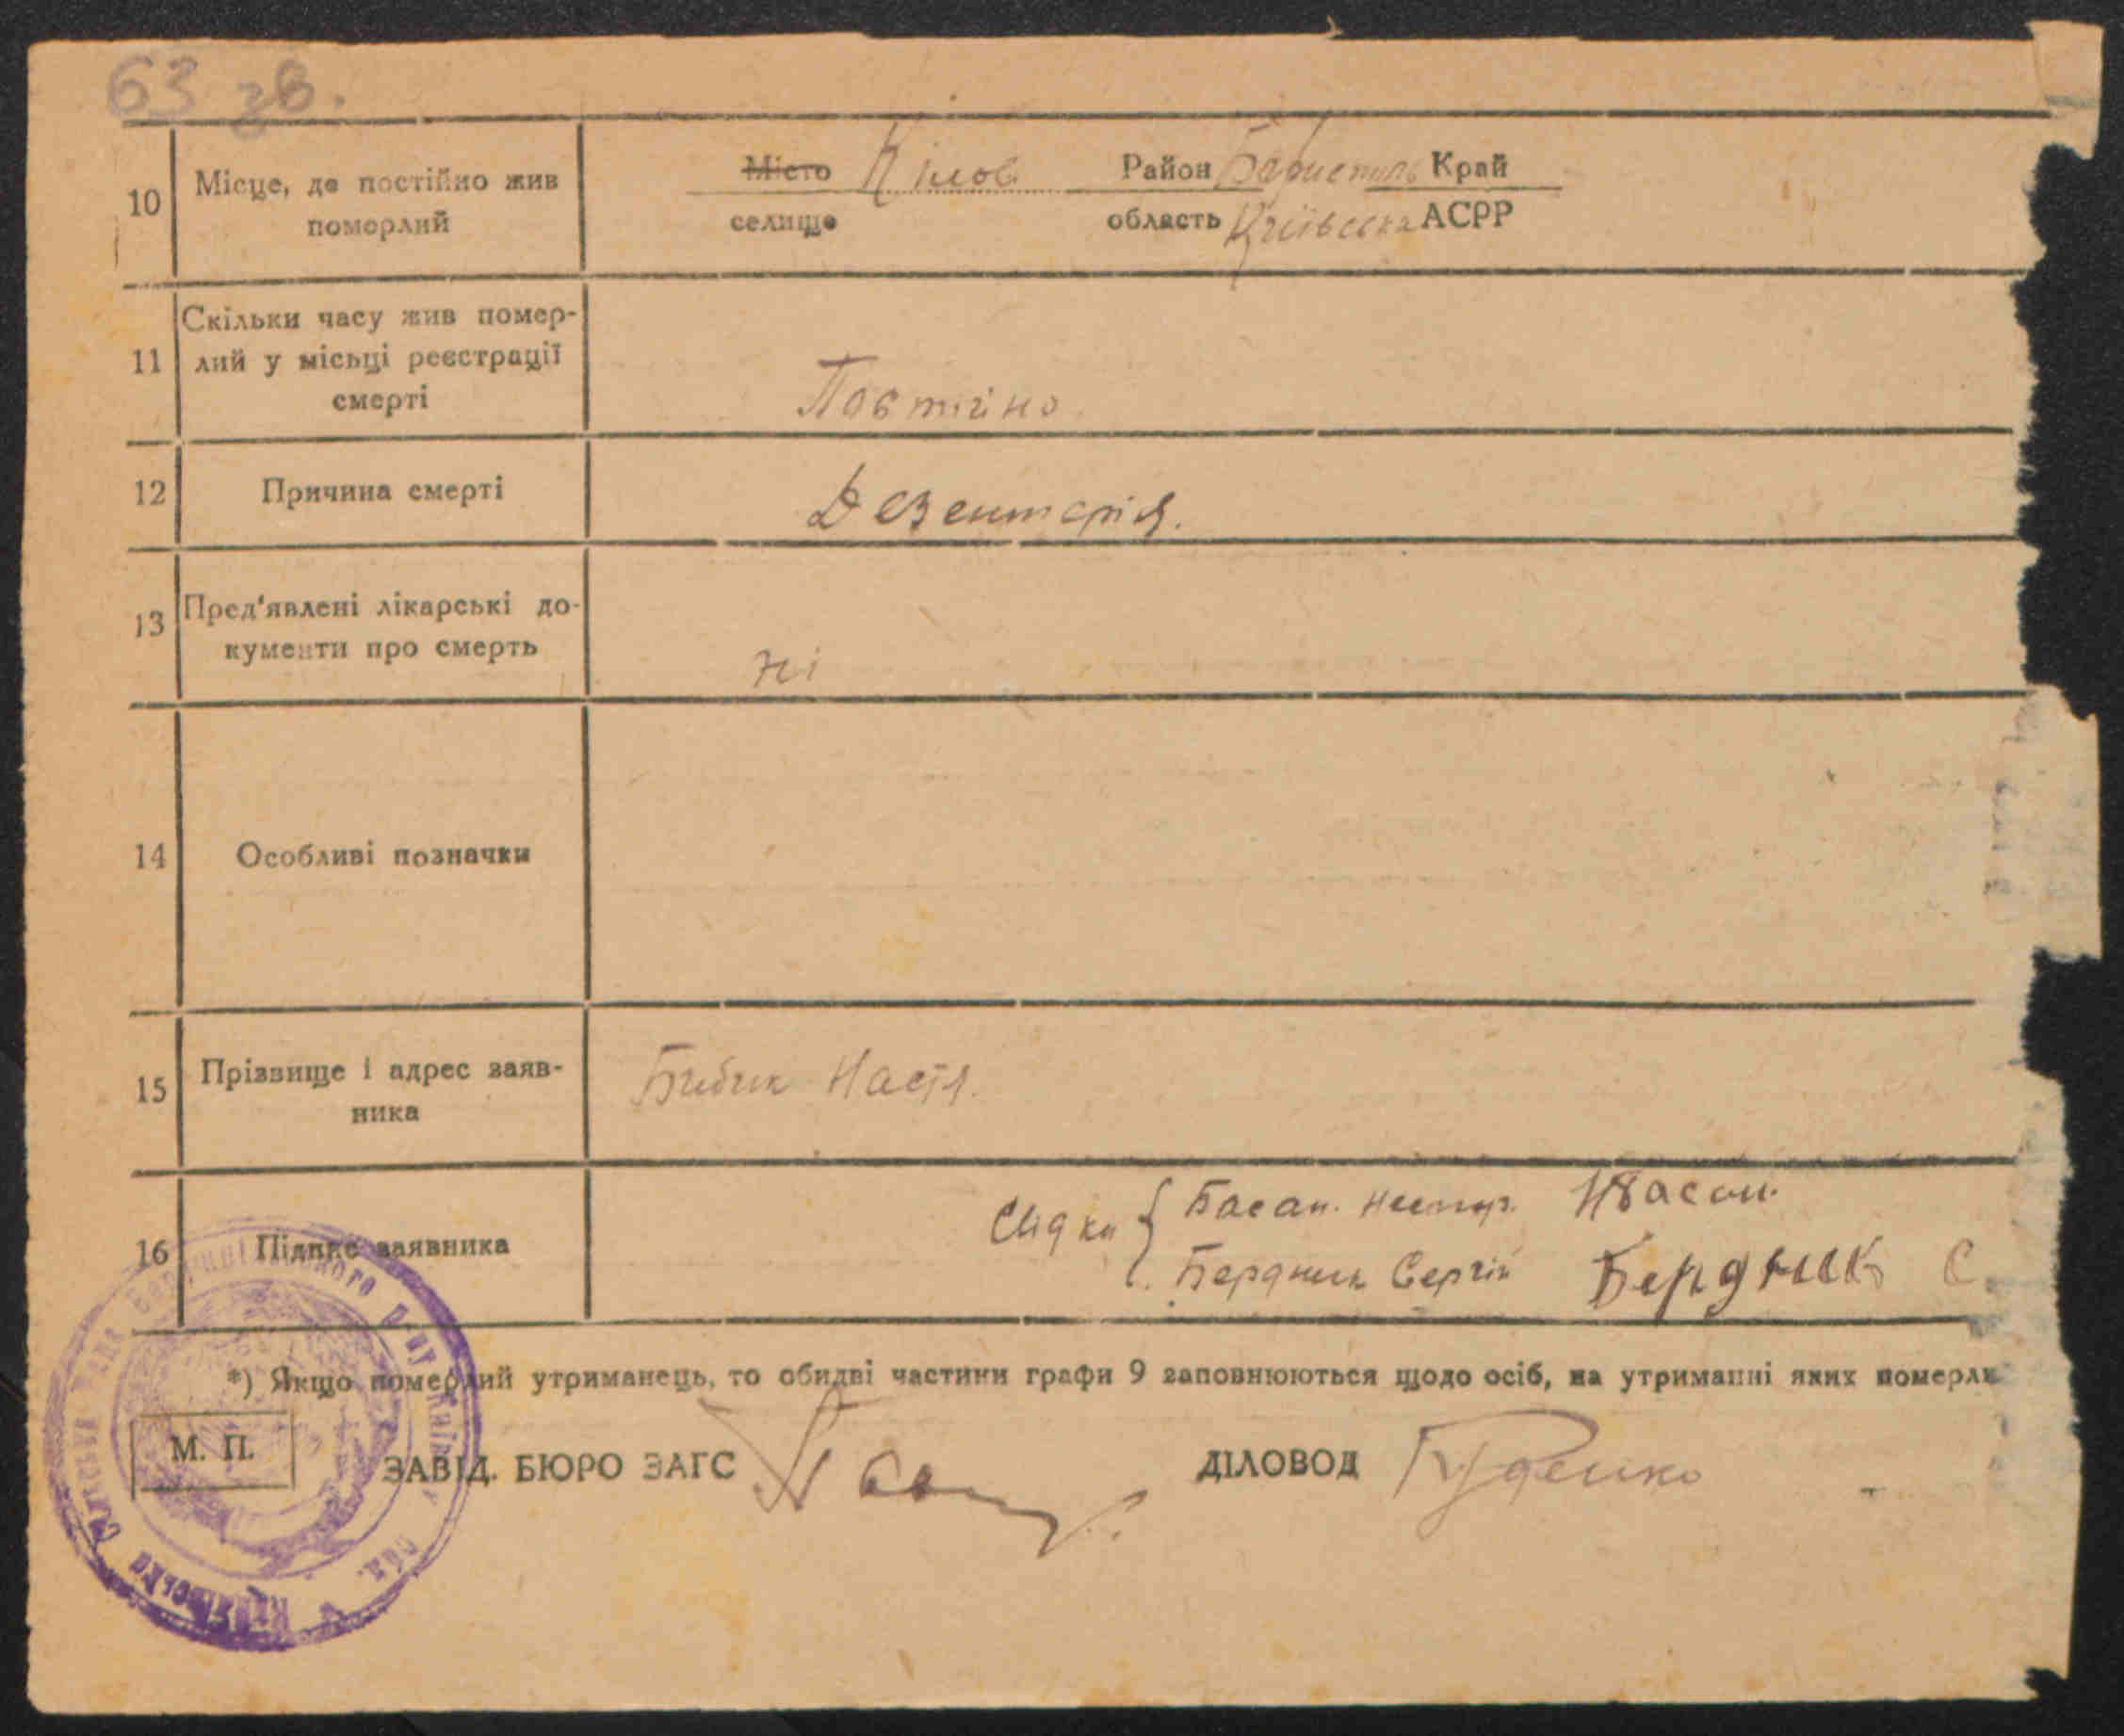 63 зв.
10 Місце, де постійно жив померлий
Місто Кійлов Район Бориспіль Край
селище область Київська АСРР
11 Скільки часу жив помер-
лий у місьці реєстрації
смерті
Постійно
12 Причина смерті Дезентерія.
13 Пред'явлені лікарські до-
кументи про смерть
Ні
14 Особливі позначки
15 Прізвище і адрес заяв-
ника
Бибик Настя.
16 Підпис заявника
Свідки { Басан. Нестор.
Бердник Сергій Бердник С
*) Якщо померлий утриманець, то обидві частини графи 9 заповнюються щодо осіб, на утриманні яких померли
М. П.
ЗАВІД. БЮРО ЗАГС ДІЛОВОД Руденко